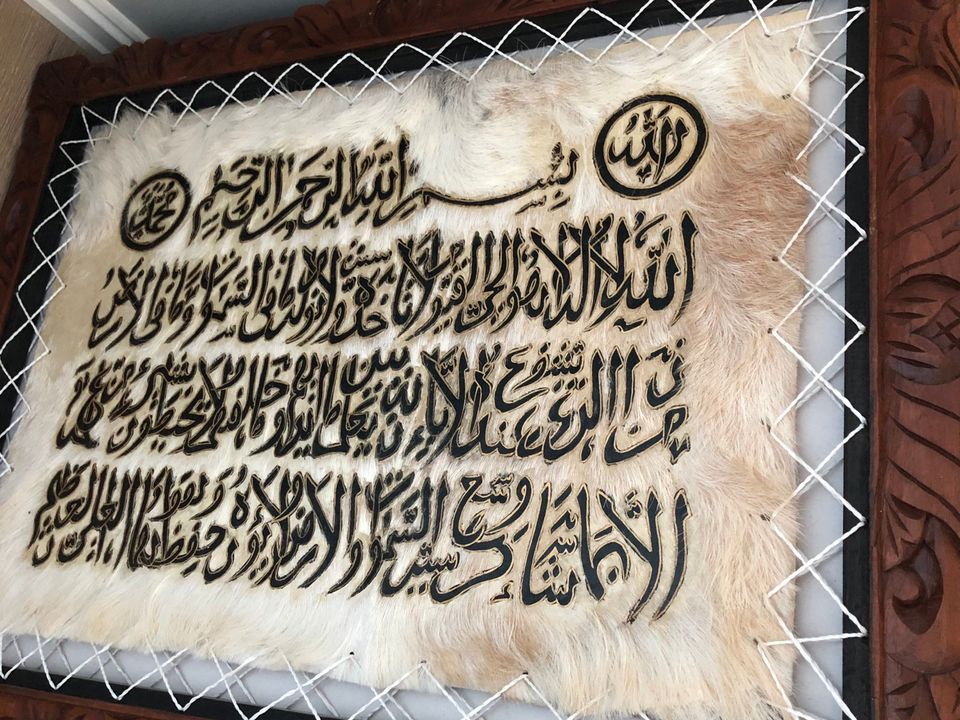 الله
بسم الله الرحمن الرحيم
محمد
الله لا اله الا هو الحي القيوم لا تاخذه سنة ولا نوم له ما في السموات وما في الارض
من ذا الذي يشفع عنده الا باذنه يعلم ما بين ايديهم وما خلفهم ولا يحيطون بشيء من علمه
الا بما شاء وسع كرسيه السموات والارض ولا يؤده حفظهما وهو العلي العظيم